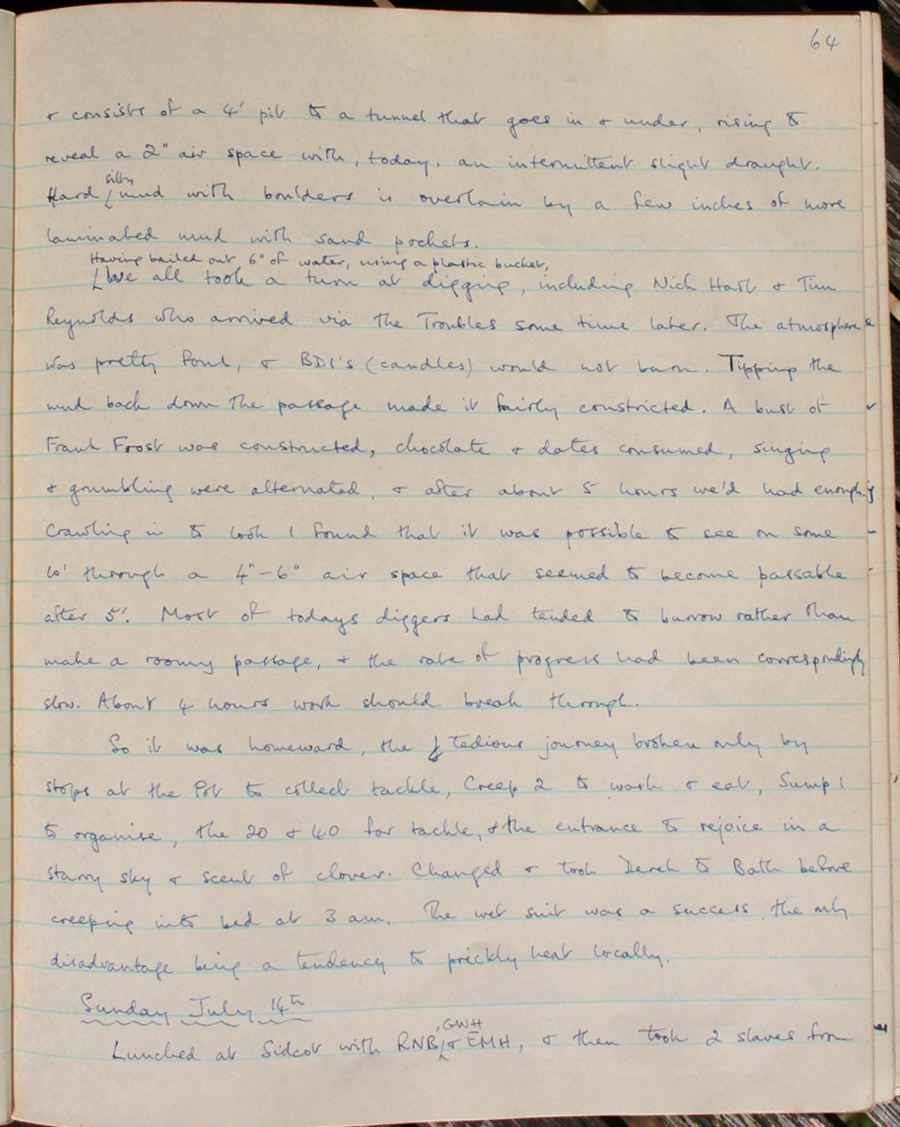 64
& consists of a 4' pit to a tunnel that goes in & under, rising to
reveal a 2" air space with, today, an intermittent slight draught.
silty
Hard mud with boulders is overlain by a few inches of more
laminated mud with sand pockets.
Having bailed out 6" of water, using a plastic bucket,
We all took a turn at digging, including Nick Hart & Tim
Reynolds who arrived via the Troubles some time later. The atmosphere
was pretty foul, & BDI's (candles) would not burn. Tipping the
mud back down the passage made it fairly constricted. A bust of
Frank Frost was constructed, chocolate & dates consumed, singing
& grumbling were alternated, & after about 5 hours we'd had enough.
Crawling in to look I found that it was possible to see on some
10' through a 4"-6" air space that seemed to become passable
after 5'. Most of todays diggers had tended to burrow rather than
make a roomy passage, & the rate of progress had been correspondingly
slow. About 4 hours work should break through.
So it was homeward, the tedious journey broken only by
stops at the Pot to collect tackle, Creep 2 to wash & eat, Sump 1
to organise, the 20 & 40 for tackle, & the entrance to rejoice in a
starry sky & scent of clover. Changed & took Derek to Bath before
creeping into bed at 3 am. The wet suit was a success, the only
disadvantage being a tendency to prickly heat locally.
Sunday July 14th
, GWH
Lunched at Sidcot with RNB & EMH, & then took 2 slaves from